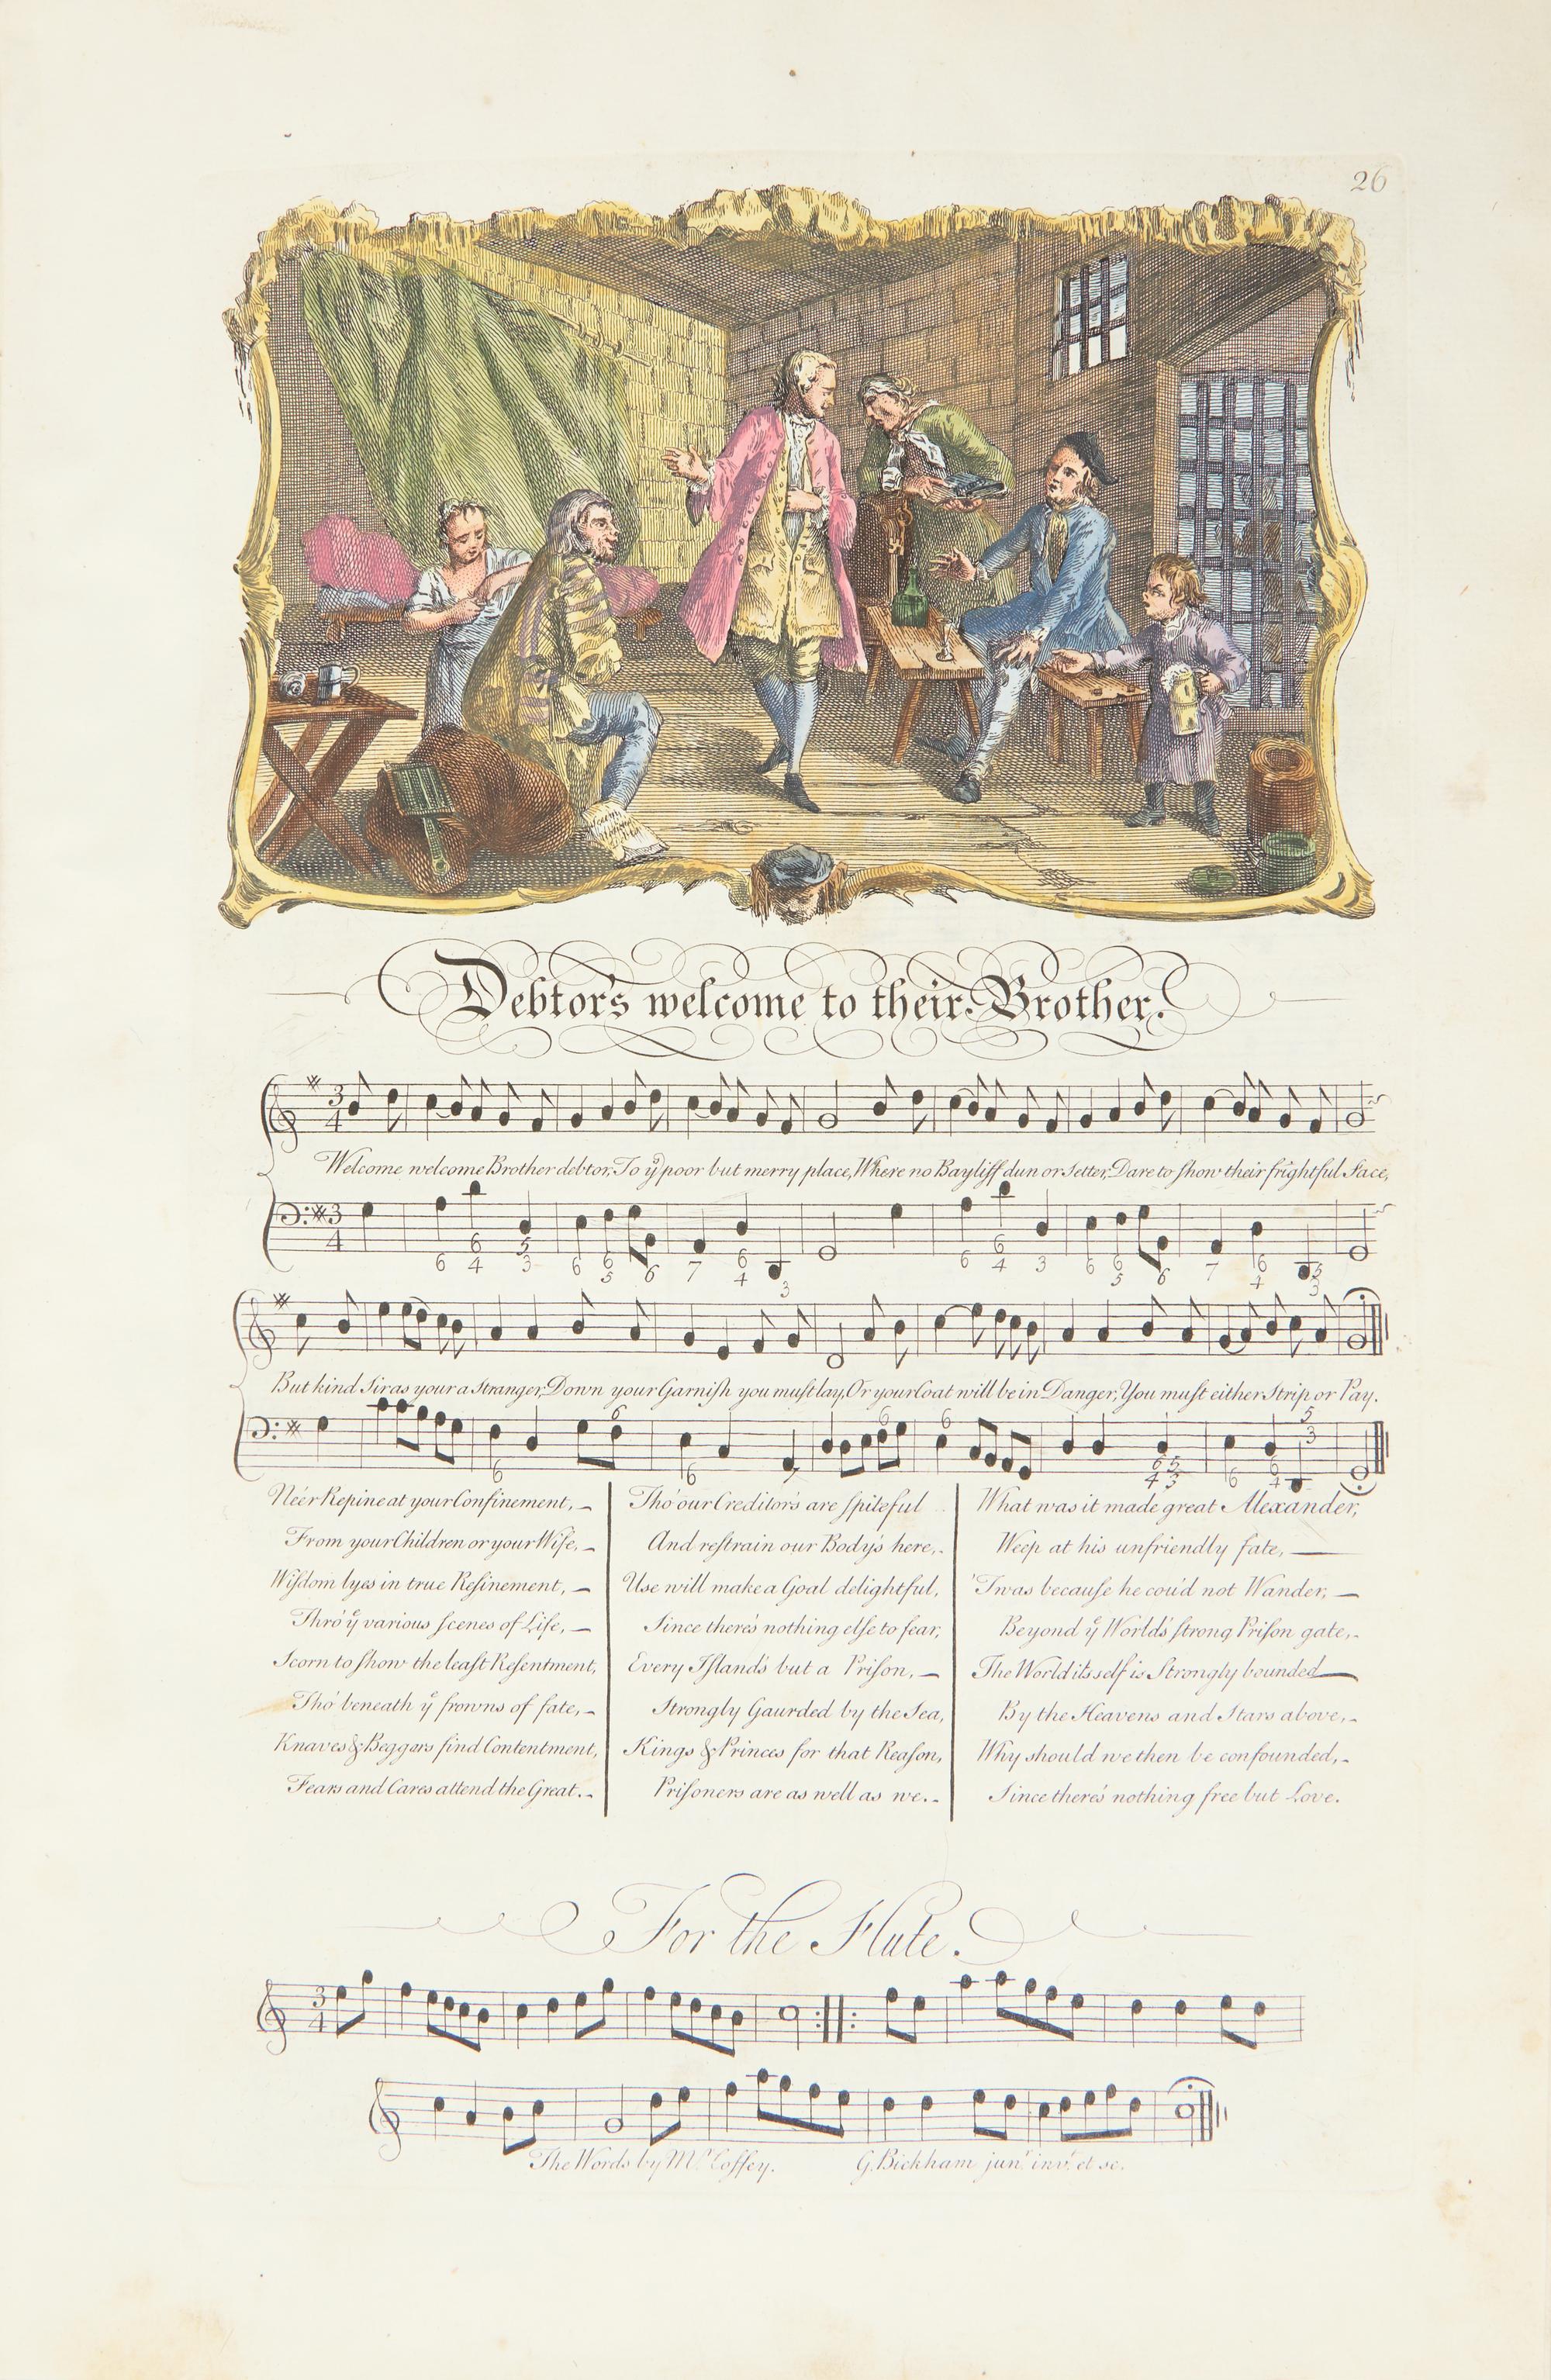 26
Debtor's welcome to their Brother.
Welcome welcome Brother debtor, To yͤ poor but merry place, Where no Bayliff dun or Setter, Dare to ſhow their frightful Face,
6 6 4 5 3 6 6 5 6 7 6 4 3 6 6 4 3 6 6 5 6 7 6 4 5 3
But kind Sir as your a Stranger, Down your Garniſh you muſt lay, Or your Coat will be in Danger, You muſt either Strip or Pay.
Ne'er Repine at your Confinement,
From your Children or your Wife,
Wiſdom lyes in true Refinement,
Thro' yͤ various ſcenes of Life,
Scorn to ſhow the leaſt Reſentment,
Tho' beneath yͤ frowns of fate,
Knaves & Beggars find Contentment,
Fears and Cares attend the Great.
Tho' our Creditor's are ſpiteful
And reſtrain our Body's here,
Use will make a Goal delightful,
Since there's nothing elſe to fear,
Every Iſland's but a Priſon,
Strongly Gaurded by the Sea,
Kings & Princes for that Reaſon,
Priſoners are as well as we.
What was it made great Alexander,
Weep at his unfriendly fate,
'Twas becauſe he cou'd not Wander,
Beyond yͤ World's ſtrong Priſon gate,
The World itsself is Strongly bounded
By the Heavens and Stars above,
Why should we then be confounded,
Since there's nothing free but Love.
For the Flute.
The Words by Mʳ. Coffey. G. Bickham junʳ. invᵗ. et sc.